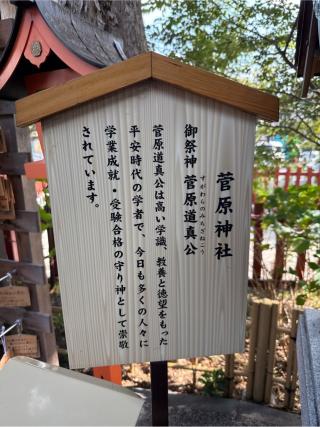 菅原神社
御祭神 菅原道真公
すがわらのみちざねこう
菅原道真公は高い学識、教養と徳望をもった
平安時代の学者で、今日も多くの人々に
学業成就・受験合格の守り神として崇敬
されています。